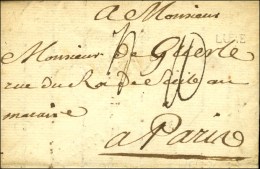 A Monsieur
Monsieur De Guerle
LUCE
rue du Roi de Sicile au
marais
a Paris